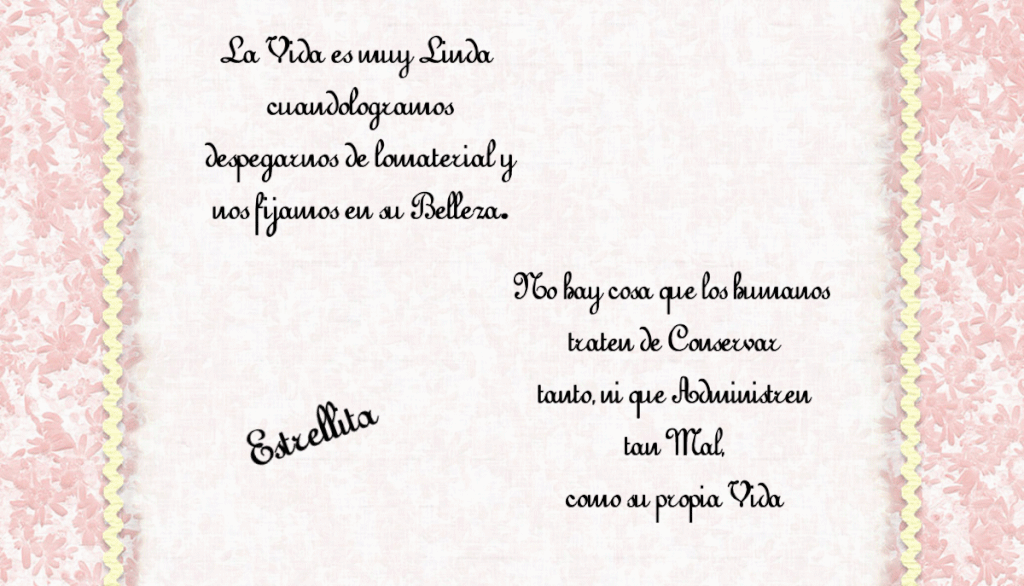 La Vida es muy Linda
cuandologramos
despegarnos de lomaterial y
nos fijamos en su Belleza.
No hay cosa que los humanos
traten de Conservar
tanto, ni que Administren
tan Mal,
como su propia Vida
Estrellita